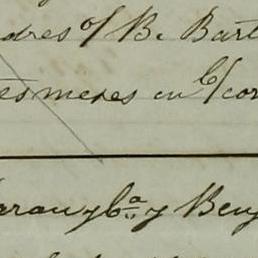 dres o/ B. Bart
tesmeses en c/cor
aran y Cª y Benj